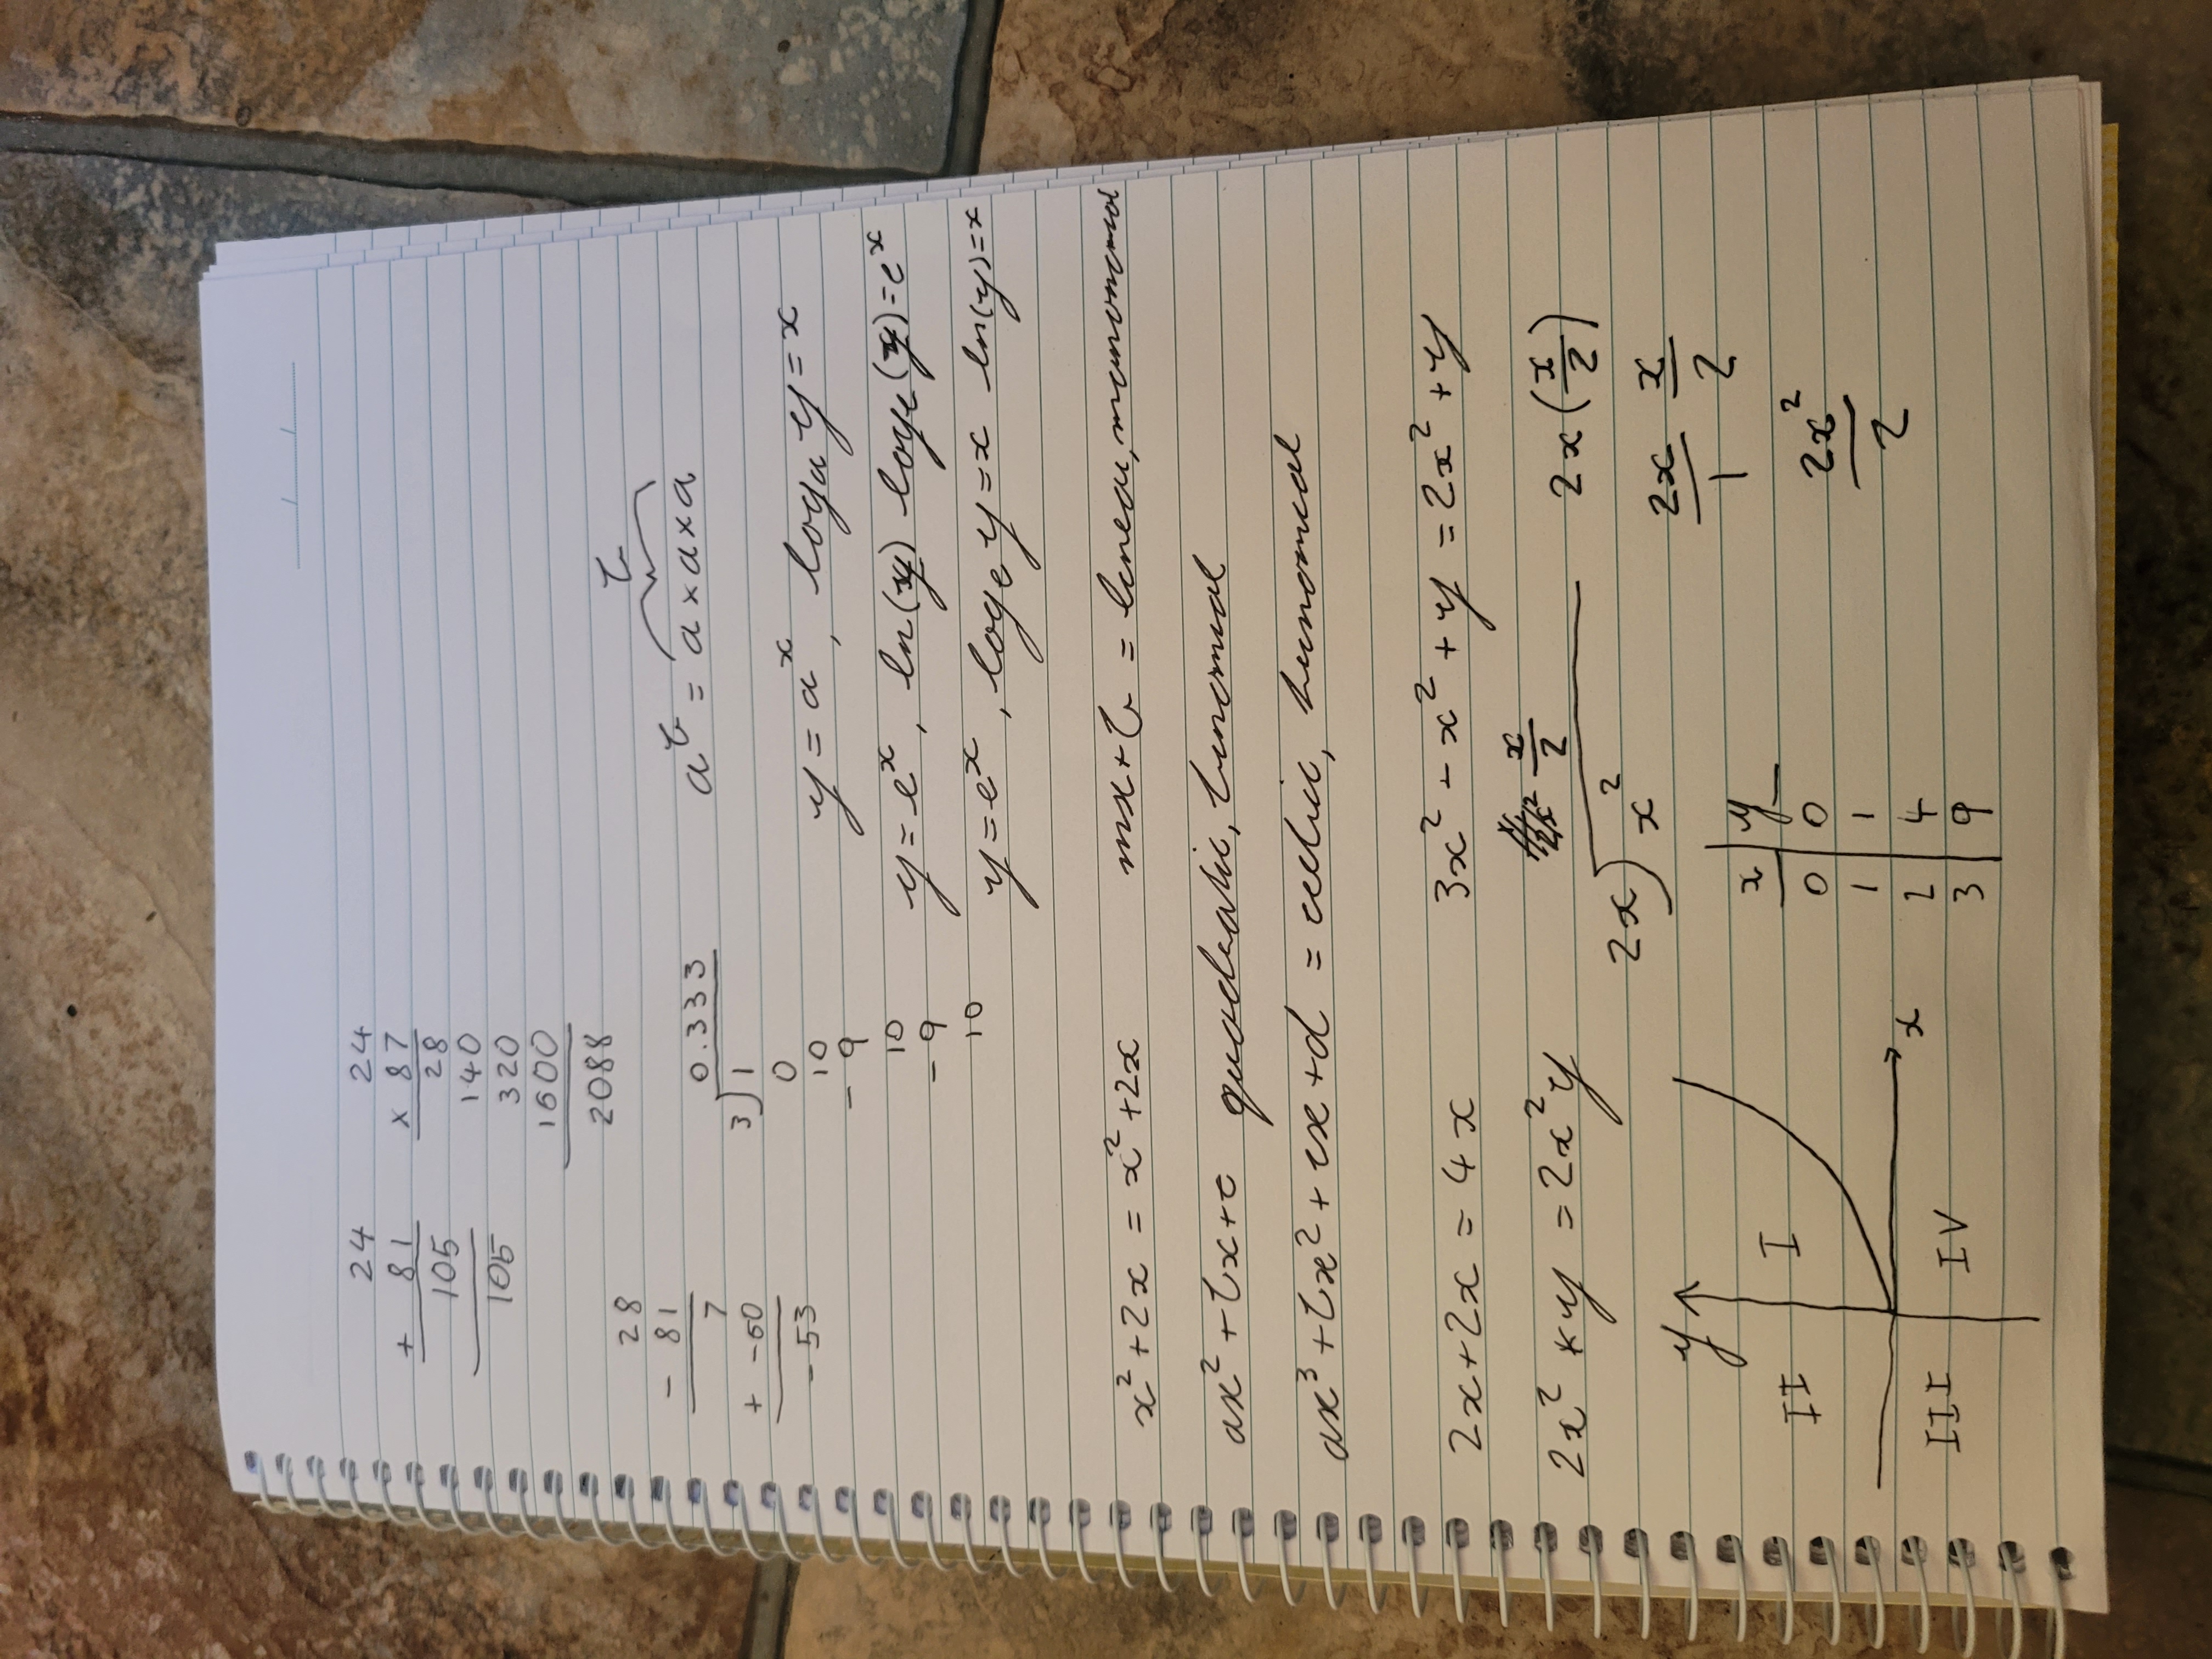 24
+ 81
105
105
24
x 87
28
140
320
1600
2088
28
- 81
7
+ -60
-53
0.333
3)1
0
10
- 9
10
- 9
10
b
a^b = a x a x a
y = a^x, log_a y = x
y = e^x, ln(y) log_e(y) = e^x
y = e^x, log_e y = x ln(y) = x
x² + 2x = x² + 2x
mx + b = linear, monomial
ax² + bx + c quadratic, binomial
ax³ + bx² + cx + d = cubic,
2x + 2x = 4x
3x² - x² + y = 2x² + y
2x² * y = 2x²y
x/2
2x)x²
2x(x/2)
2x/1 x/2
2x²/2
y
II I
x
III IV
x y
0 0
1 1
2 4
3 9